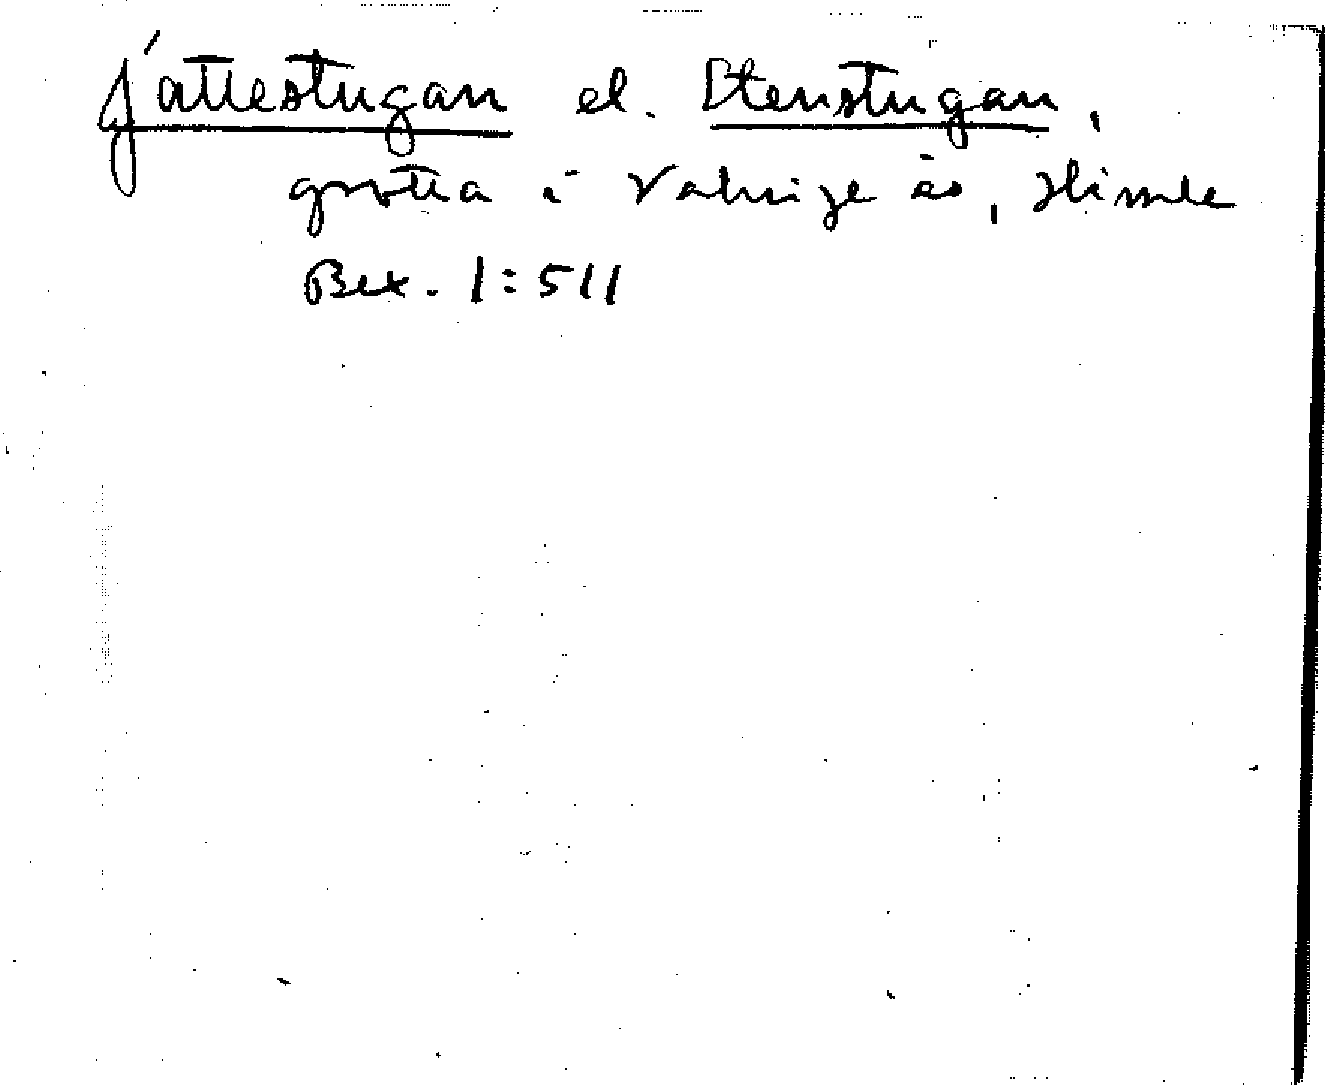 Jättestugan el. Stenstugan,
grotta i Valinge ås, Himle
Bex. 1:511